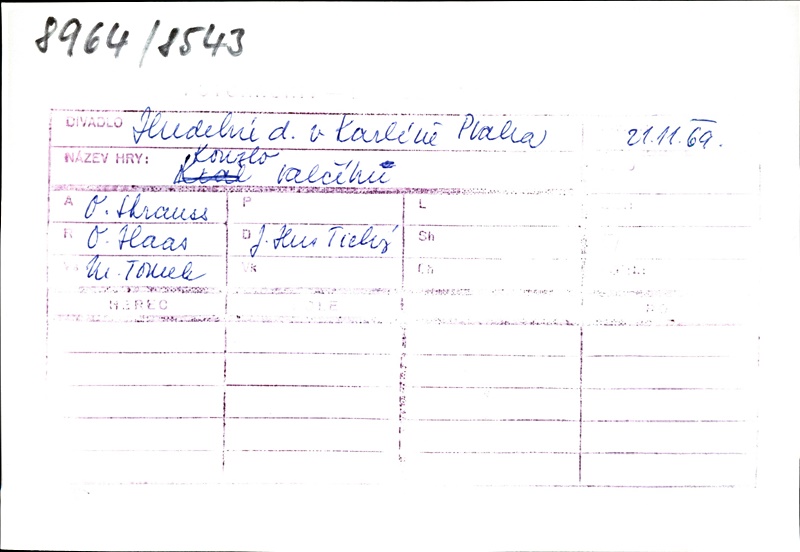 8964/8543
DIVADLO Hudebné d. v Karlíně Praha 21.11.69.
NÁZEV HRY: Kouzlo
Kral valčíku
A O. Strauss P L
R O. Haas D J. Hus Tichý Sh
M. Tomek Vk Ch
HEREC